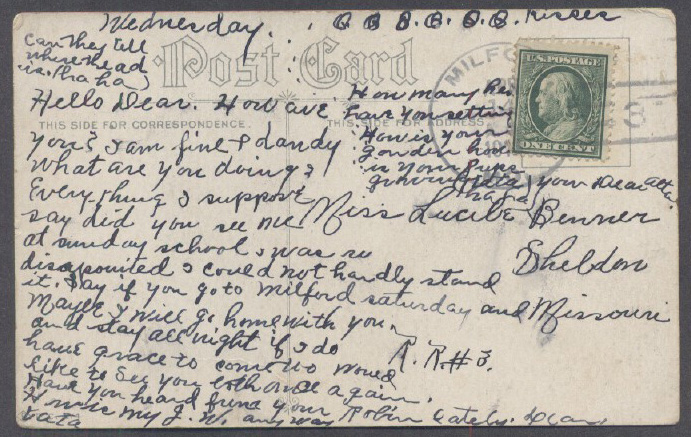 Wednesday.
Kisses
Can they tell
where the ad
is. (ha ha)
Post Card
THIS SIDE FOR CORRESPONDENCE.
THIS SIDE FOR ADDRESS
MILFO
U.S. POSTAGE
ONE CENT
3
Hello Dear. How are
you? I am fine & dandy
What are you doing?
Everything I suppose
say did you see me
at sunday school, was so
disapointed I could not hardly stand
it. Say if you go to Milford saturday and
Maybe I will go home with you,
and stay all night if I do
have grace to come would
like to see you both once again.
Have you heard from your Robin lately. Dear
How is my J. W. any way
tata
How many
have you setting
How is your
garden
is your
growing
your Dear
Miss Lucile Benner
Sheldon
Missouri
R. R. #3.